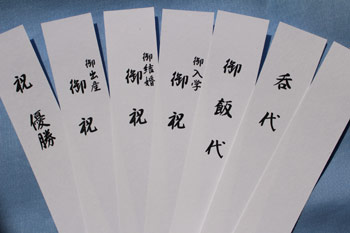 祝 優勝
御出産
御祝
御結婚
御祝
御入学
御祝
御飯代
呑代